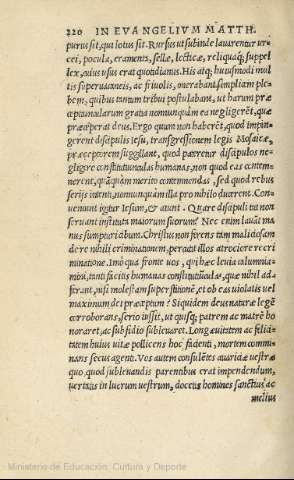 220 IN EVANGELIVM MATTH.
purus sit, qui lotus sit. Rursus ut subinde lauarentur ur
cei, pocula, eramenta, sellæ, lecticæ, reliquaq; suppel
lex, cuius usus erat quotidianus. His atq; huiusmodi mul
tis superuacaneis, ac friuolis, onerabant simplicem ple
bem, quibus tantum tribui postulabant, ut harum præ
ceptiuncularum gratia nonnunquàm ea negligerēt, quæ
præceperat deus. Ergo quum non haberēt, quod impin
gerent discipulis Iesu, transgreßionem legis Mosaicæ,
præceptorem suggillant, quod pateretur discipulos ne
gligere constitutiunculas humanas, non quod eas contem
nerent, quāquàm merito contemnendas, sed quod rebus
serijs intenti, nonnunquàm illa pro nihilo ducerent. Con=
ueniunt igitur Iesum, & aiunt. Quare discipuli tui non
seruant instituta maiorum suorum? Nec enim lauāt ma
nus sumpturi cibum. Christus non ferens tam malitiosam
de re nihili criminationem, percutit illos atrociore recri
minatione. Imò qua fronte uos, quibæc leuia calumnia=
mini, tanti facitis humanas constitutiūculas, quæ nihil ad
ferunt, nisi molestam superstitionē, et ob eas uiolatis uel
maximum dei præceptum? Siquidem deus naturæ legē
corroborans, serio iussit, ut quisq; patrem ac matrē ho
noraret, ac subsidio subleuaret. Longæuitatem ac felici=
tatem huius uitæ pollicens hoc facienti, mortem commi=
nans secus agenti. Vos autem consulētes auaritiæ uestræ
quo, quod subleuandis parentibus erat impendendum,
uertatis in lucrum uestrum, docetis homines sanctius ac
melius
Ministerio de Educación, Cultura y Deporte